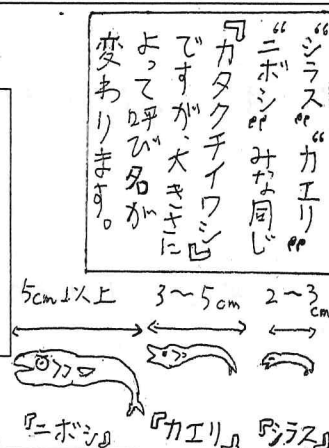 “シラス„ “カエリ„
“ニボシ„ みな同じ
『カタクチイワシ』
ですが、大きさに
よって呼び名が
変わります。
5cm以上
3〜5cm
2〜3cm
『ニボシ』
『カエリ』
『シラス』